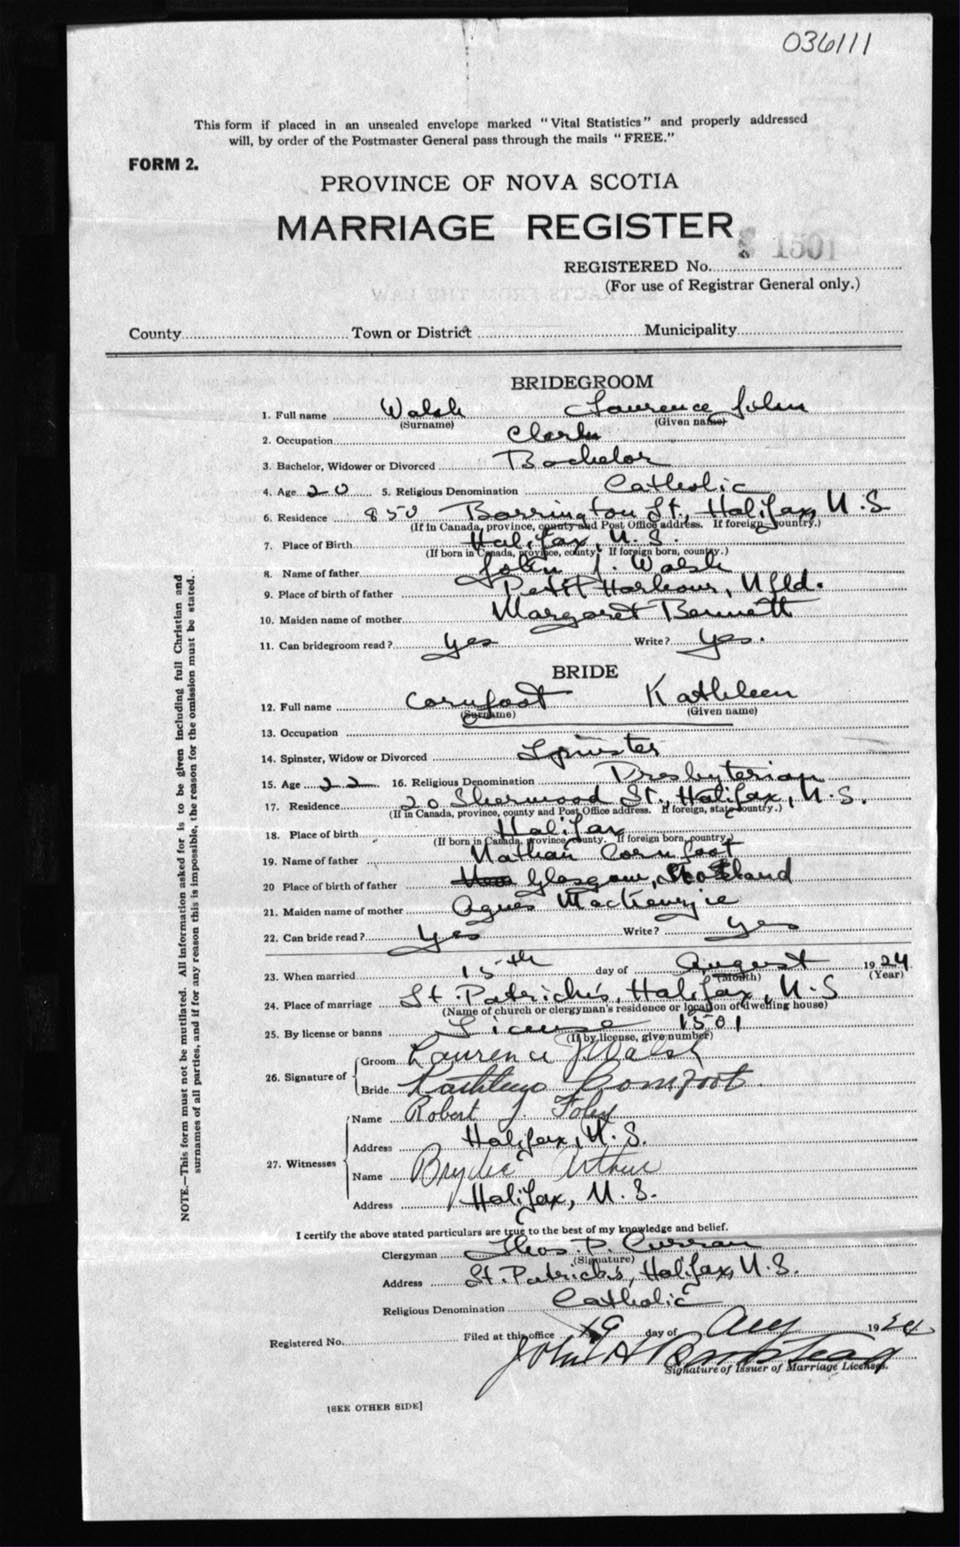 036111
This form if placed in an unsealed envelope marked "Vital Statistics" and properly addressed
will, by order of the Postmaster General pass through the mails "FREE."
FORM 2.
PROVINCE OF NOVA SCOTIA
MARRIAGE REGISTER
1501
REGISTERED No.
(For use of Registrar General only.)
County Town or District Municipality
BRIDEGROOM
1. Full name Walsh Laurence John
(Surname) (Given name)
2. Occupation Clerk
3. Bachelor, Widower or Divorced Bachelor
4. Age 20 5. Religious Denomination Catholic
6. Residence 850 Barrington St., Halifax, N.S
(If in Canada, province, county and Post Office address. If foreign country.)
7. Place of Birth Halifax, N.S.
(If born in Canada, province, county. If foreign born, country.)
8. Name of father John J. Walsh
9. Place of birth of father Petit Harbour, Nfld.
10. Maiden name of mother Margaret Bennett
11. Can bridegroom read? yes Write? yes.
BRIDE
12. Full name Cornfoot Kathleen
(Surname) (Given name)
13. Occupation
14. Spinster, Widow or Divorced Spinster
15. Age 22 16. Religious Denomination Presbyterian
17. Residence 20 Sherwood St., Halifax, N.S.
(If in Canada, province, county and Post Office address. If foreign, state country.)
18. Place of birth Halifax
(If born in Canada, province county. If foreign born, country.)
19. Name of father Nathan Cornfoot
20 Place of birth of father Glasgow, Scotland
21. Maiden name of mother Agnes MacKenzie
22. Can bride read? yes Write? yes
23. When married 15th day of August 1924
(Month) (Year)
24. Place of marriage St. Patrick's, Halifax, N.S
(Name of church or clergyman's residence or location of dwelling house)
25. By license or banns License 1501
(If by license, give number)
26. Signature of Groom Laurence J Walsh
Bride Kathleen Cornfoot
27. Witnesses Name Robert J. Foley
Address Halifax, N.S.
Name Arthur
Address Halifax, N.S.
I certify the above stated particulars are true to the best of my knowledge and belief.
Clergyman Thos. P. Curran
(Signature)
Address St. Patrick's, Halifax, N.S.
Religious Denomination Catholic
Registered No. Filed at this office 19 day of Aug 1924
John H
Signature of Issuer of Marriage Licenses.
[SEE OTHER SIDE]
NOTE.—This form must not be mutilated. All information asked for is to be given including full Christian and
surnames of all parties, and if for any reason this is impossible, the reason for the omission must be stated.